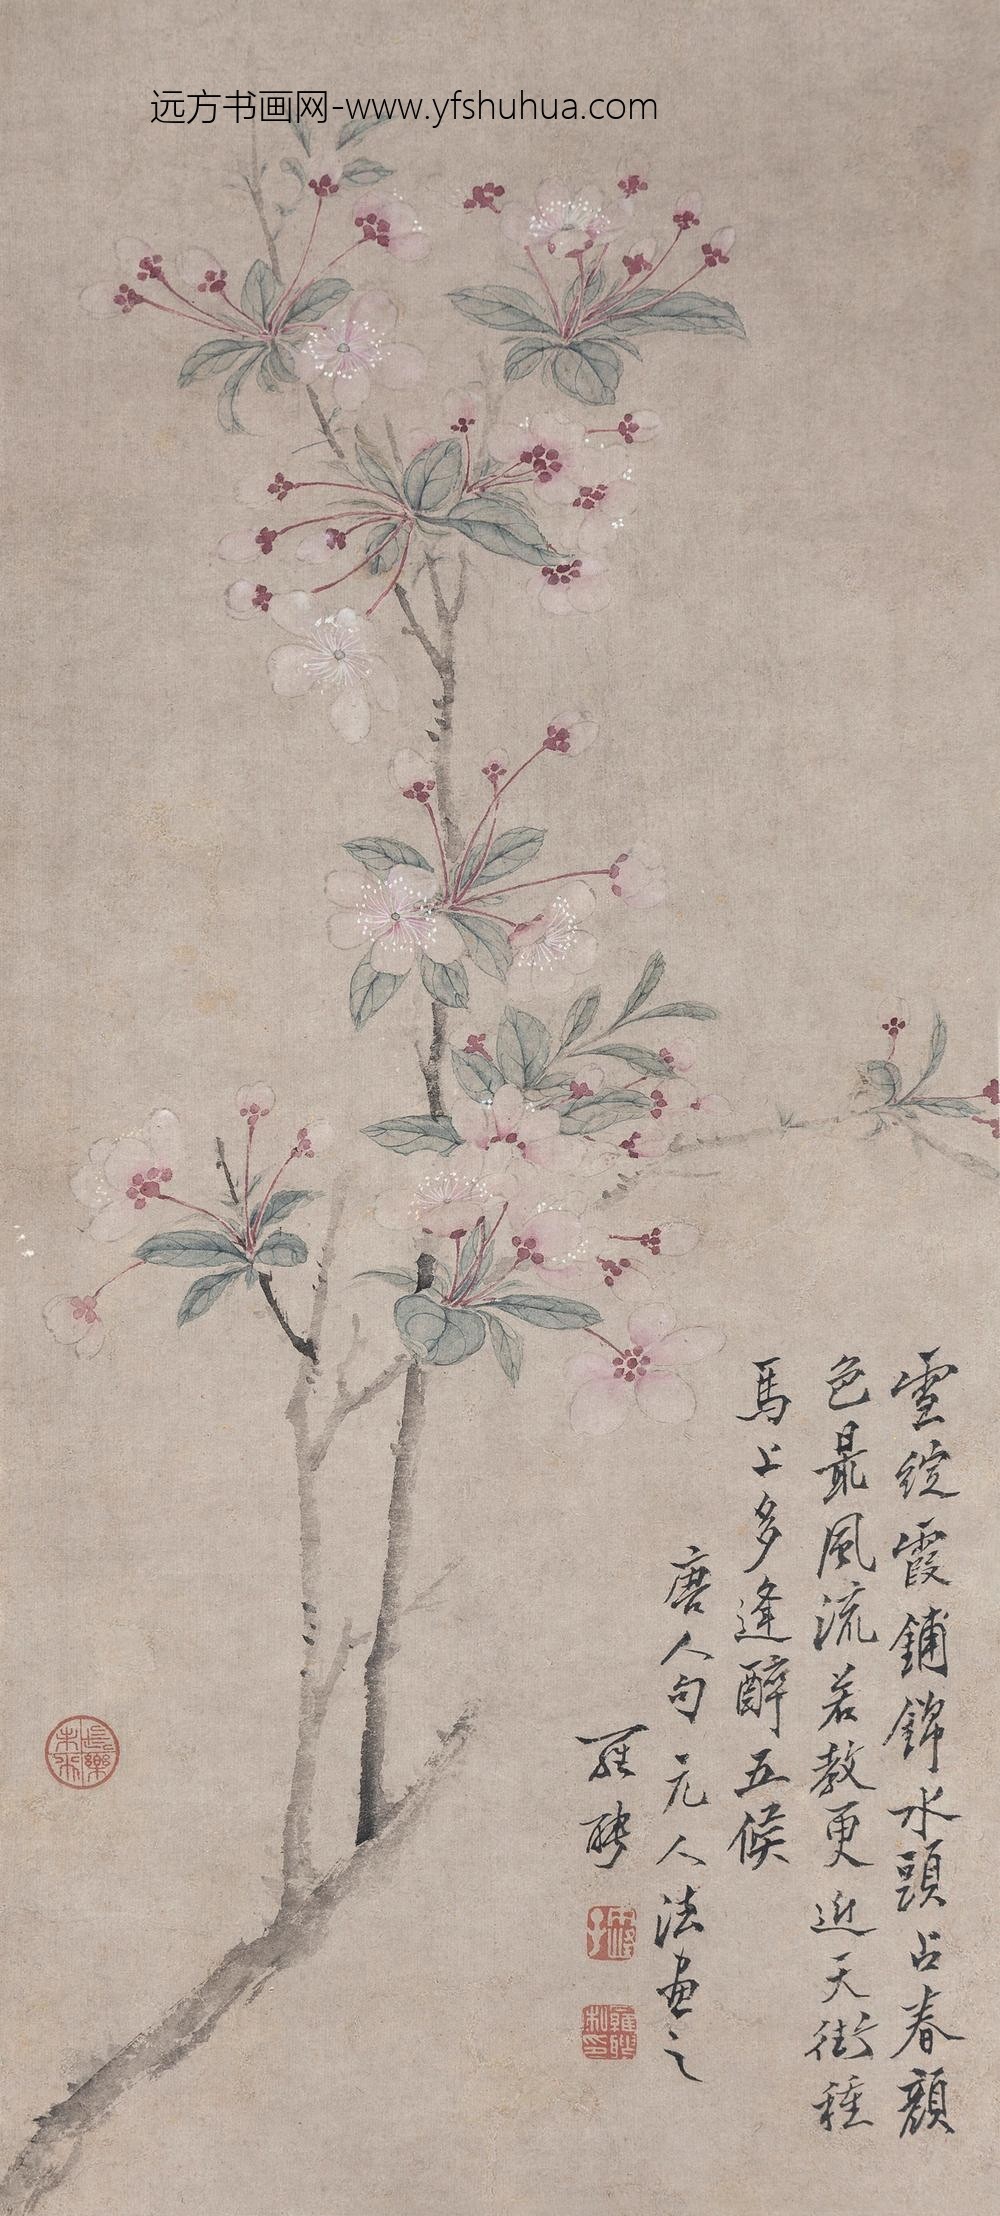 远方书画网-www.yfshuhua.com
雪綻霞鋪錦水頭占春顏
色最風流若教更近天街種
馬上多逢醉五侯
唐人句元人法畫之
羅聘
長樂未央
羅聘私印